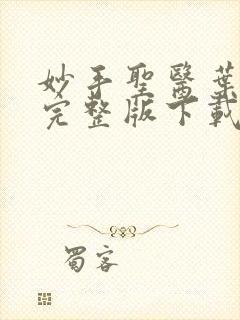 妙手聖醫葉
完整版下載
蜀客